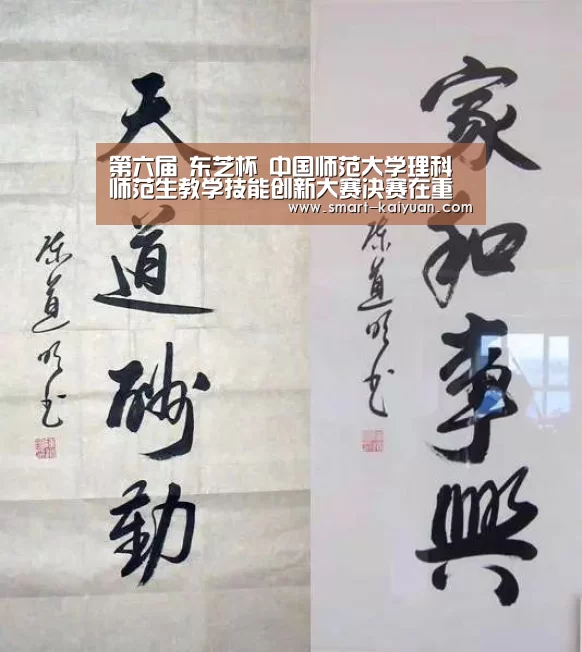 天道酬勤
陈道明书
家和事興
陈道明书
第六届 东芝杯 中国师范大学理科
师范生教学技能创新大赛决赛在重
www.smart-kaiyuan.com